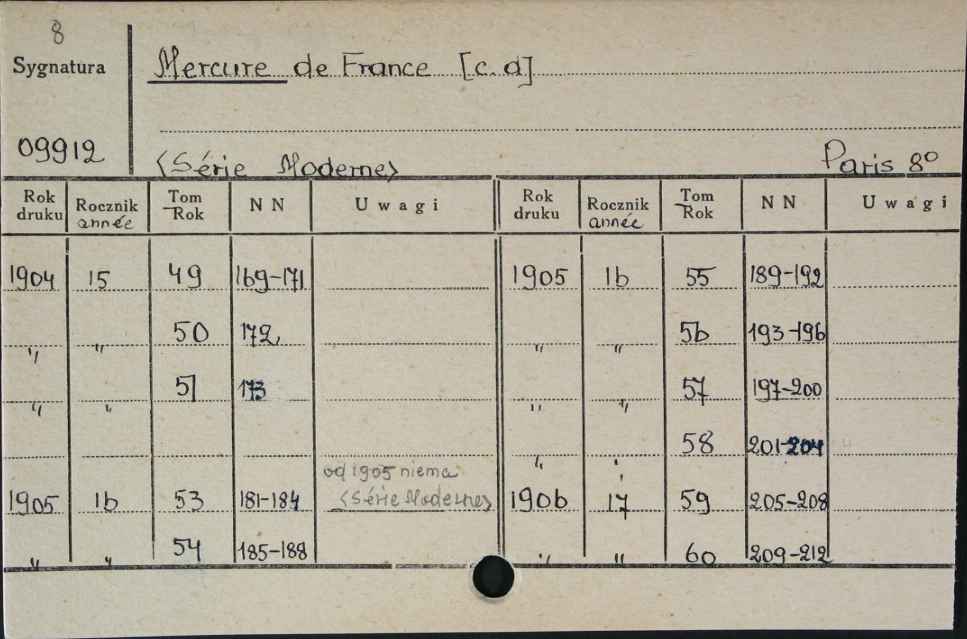 8
Sygnatura
Mercure de France [c.d]
09912
<Série Moderne>
Paris 8º
Rok druku Rocznik année Tom Rok N N Uwagi Rok druku Rocznik année Tom Rok N N Uwagi
1904 15 49 169-171 1905 16 55 189-192
" " 50 172, " " 56 193-196
" " 51 173 " " 57 197-200
" " 58 201-204
od 1905 niema
1905 16 53 181-184 <Série Moderne> 1906 17 59 205-208
" " 54 185-188 " " 60 209-212